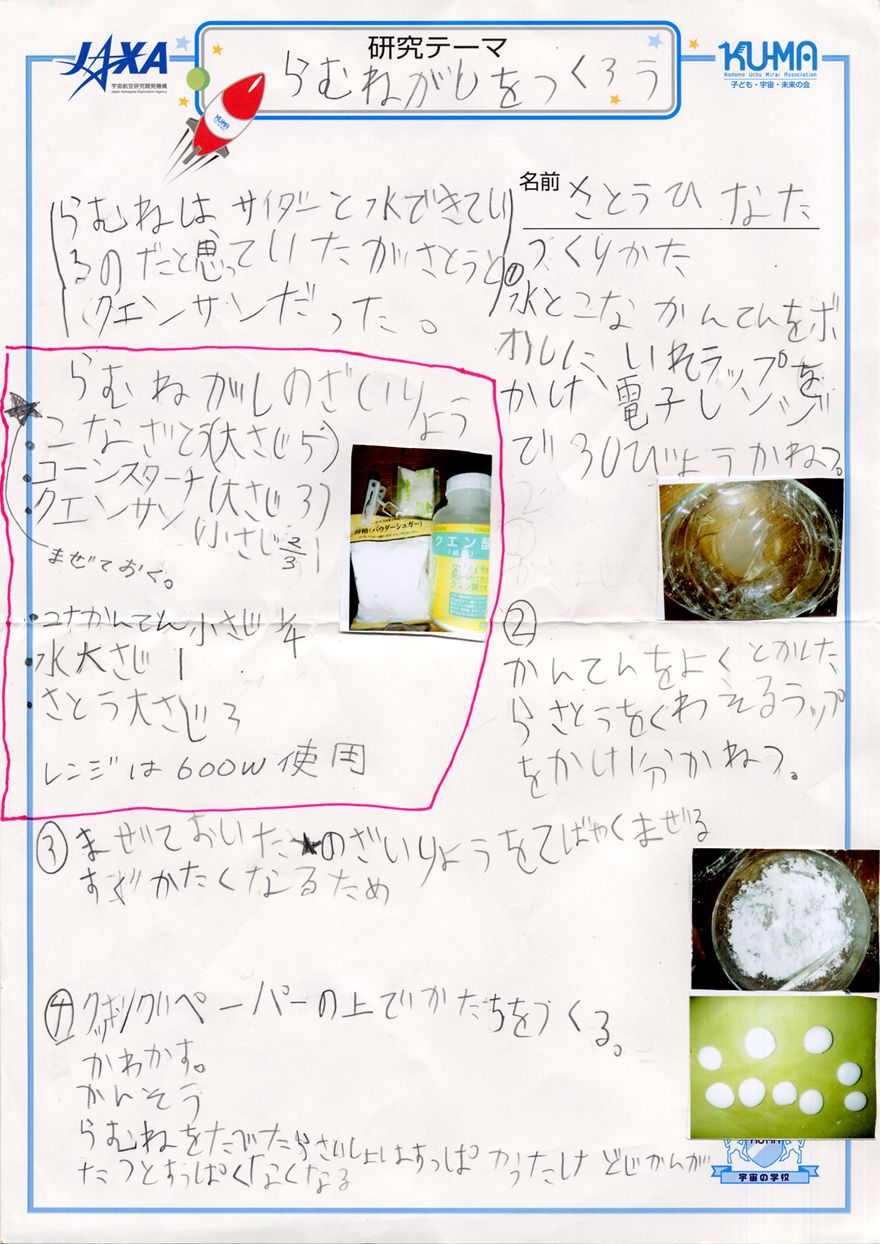 JAXA
宇宙航空研究開発機構
Japan Aerospace Exploration Agency
研究テーマ
らむねがしをつくろう
KU-MA
Kodomo Uchu Mirai Association
子ども・宇宙・未来の会
KU-MA
名前 さとうひなた
らむねはサイダーと水でできてい
るのだと思っていたがさとうと
クエンサンだった。
らむねがしのざいりょう
★
・こなざとう(大さじ5)
・コーンスターチ(大さじ3)
・クエンサン(小さじ2/3)
まぜておく。
・コナかんてん小さじ1/4
・水大さじ1
・さとう大さじ3
レンジは600W使用
(パウダーシュガー)
クエン酸
つくりかた
①水とこなかんてんをボ
かけ、電子レンジ
で30びょうかねつ。
②
かんてんをよくとかした
らさとうをくわえるラップ
をかけ1分かねつ。
③まぜておいた★のざいりょうをてばやくまぜる
すぐかたくなるため
④クッキングペーパーの上でかたちをつくる。
かわかす。
かんそう
らむねをたべたらさいしょはすっぱかったけどじかんが
たつとすっぱくなくなる
KU-MA
宇宙の学校